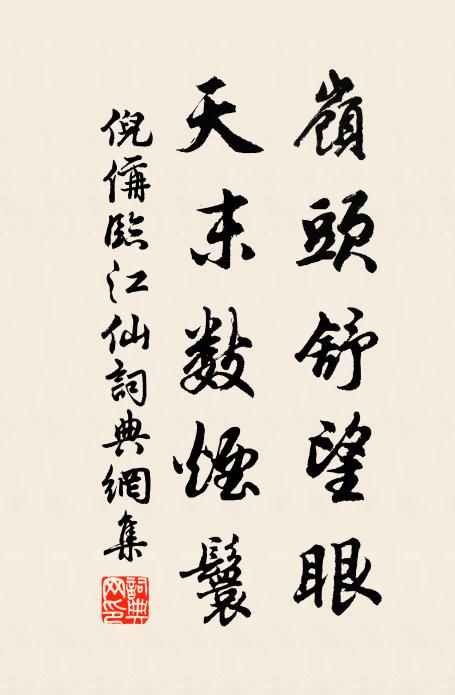 嶺頭舒望眼
天末數煙鬟
倪偁臨江仙詞典網集
詞典网印